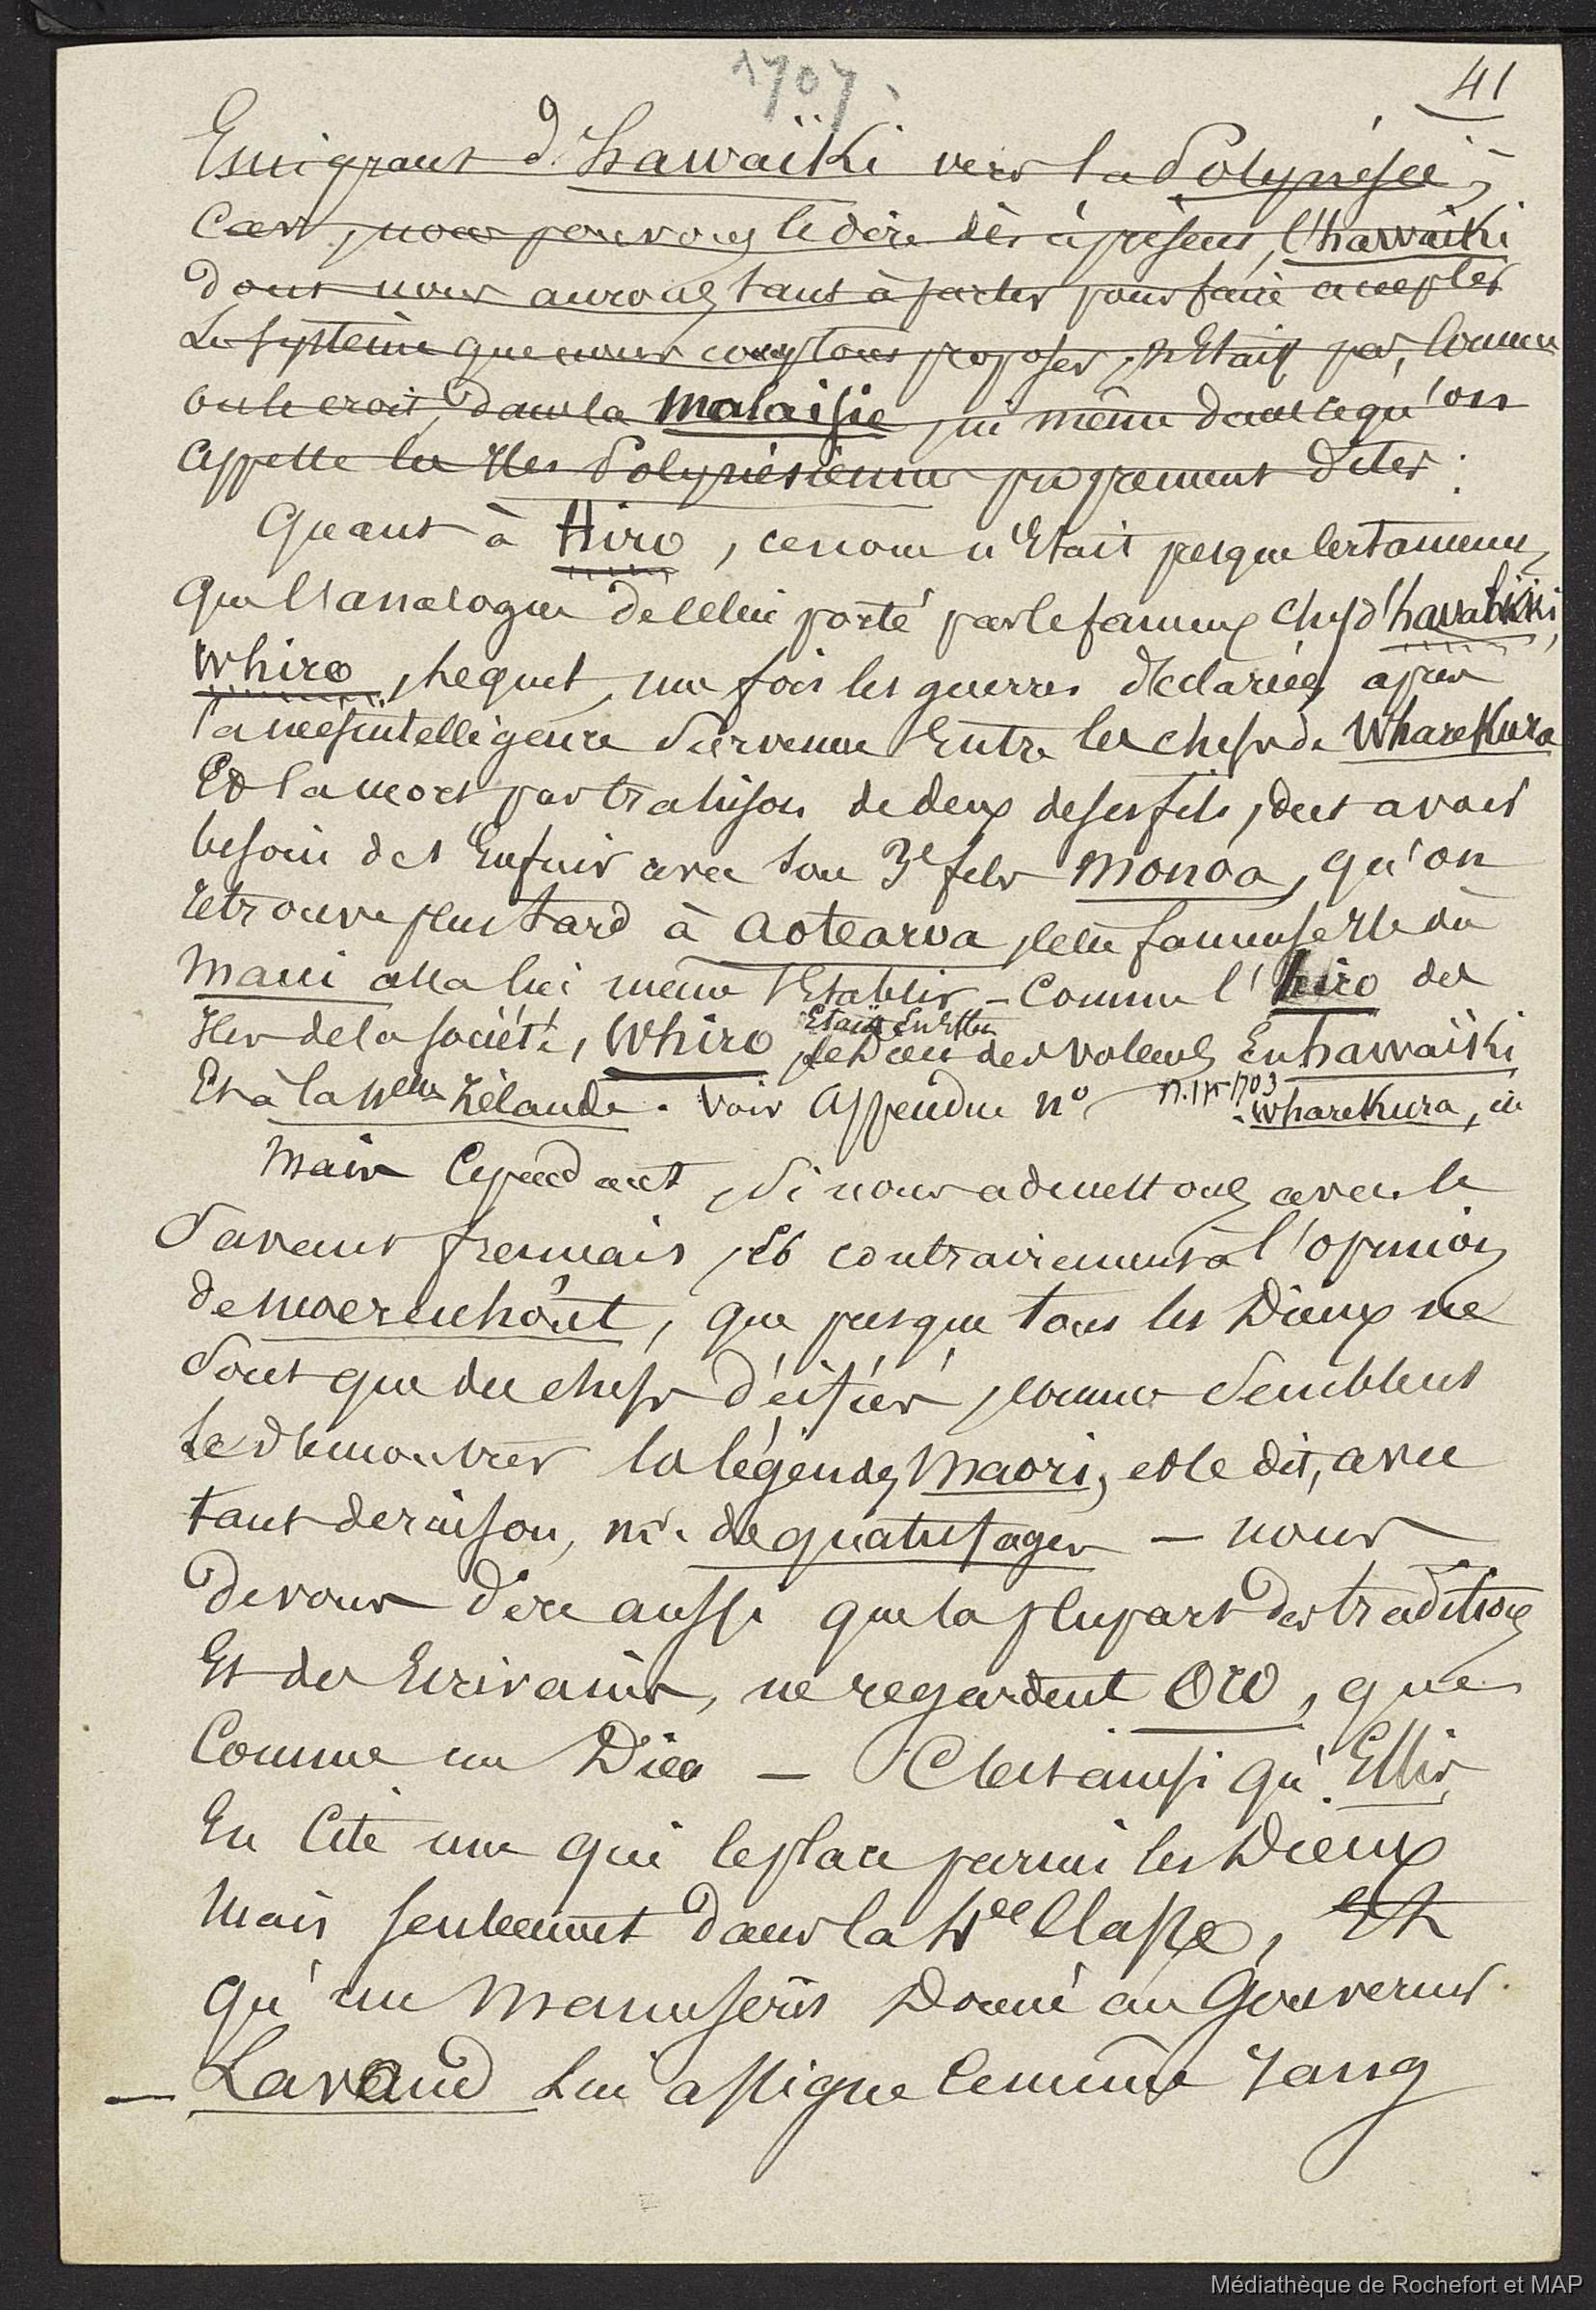 1707.
41
Emigrant d'hawaïKi vers la Polynésie,
Car, nous pouvons le dire dès à présent, l'hawaïki
dont nous aurons tant à parler pour faire accepter
Le système que nous comptons proposer, n'Etait pas, comme
on le croit, dans la Malaisie, ni même dans ce qu'on
appelle les Iles Polynésiennes proprement dites.
Quant à Hiro, ce nom n'Etait presque certainement
que l'analogue de celui porté par le fameux chef d'hawaïki,
Whiro, lequel, une fois les guerres déclarées après
la mésintelligence survenue Entre les chefs de WhareKura
Et la mort par trahison de deux de ses fils, dut avoir
besoin de s'Enfuir avec son 3e fils Monoa, qu'on
retrouve plus tard à Aotearoa, cette fameuse Ile où
Maui alla lui même s'Etablir - Comme l'hiro des
Iles de la société, Whiro Etait En Effet le Dieu des voleurs En hawaïki
Et à la Nelle Zélande. Voir Appendice n° 1703
- WhareKura, in
Mais Cependant, si nous admettons avec le
Savant français, Et contrairement à l'opinion
de Moerenhoüt, que presque tous les Dieux ne
sont que des chefs déifiés, comme semblent
le démontrer les légendes Maori, et le dit, avec
tant de raison, Mr. de quatrefages - nous
devons dire aussi que la plupart des traditions
Et des Ecrivains, ne regardent Oro, que
Comme un Dieu - C'est ainsi qu'Ellis
En Cite une qui le place parmi les Dieux
Mais seulement dans la classe, Et
qu'un Manuscrit Donné au Gouverneur
- Lavaud lui assigne le même rang
Médiathèque de Rochefort et MAP